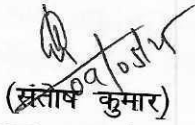 09/05/25
(संतोष कुमार)